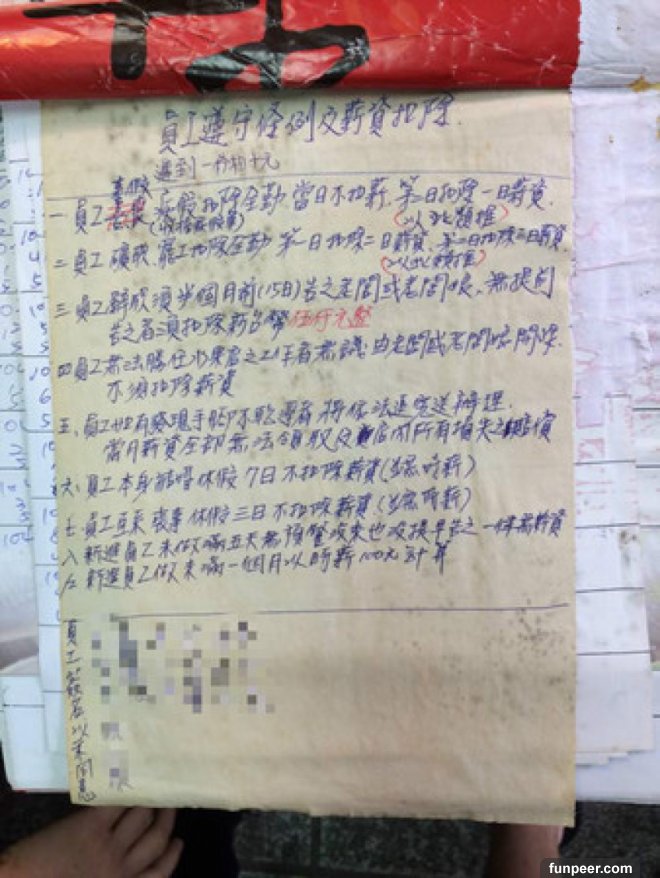 員工遵守條例及薪資扣除.
遲到一分扣十元
事假
一 員工病假扣除全勤.當日不扣薪.第二日扣除一日薪資.
(以此類推)
二 員工曠職 罷工扣除全勤 第一日扣除二日薪資.第二日扣除三日薪資
(以此類推)
三 員工辭職須半個月前(15日)告之老闆或老闆娘.無提前
告之者須扣除新台幣伍仟元整
四 員工無法勝任水果店之工作者無議.由老闆或老闆娘開除.
不須扣除薪資
五、員工如有發現手腳不乾淨者 將依法追究送辦理.
當月薪資全部無法領取及店內所有損失之賠償
六、員工本身結婚休假 7日不扣除薪資(並無時薪)
七 員工直系喪事休假三日不扣除薪資(並無時薪)
八 新進員工未做滿五天無預警沒來也沒提早告之一律無薪資
九 新進員工做未滿一個月以時薪100元計算
員工簽名以茉同意
funpeer.com